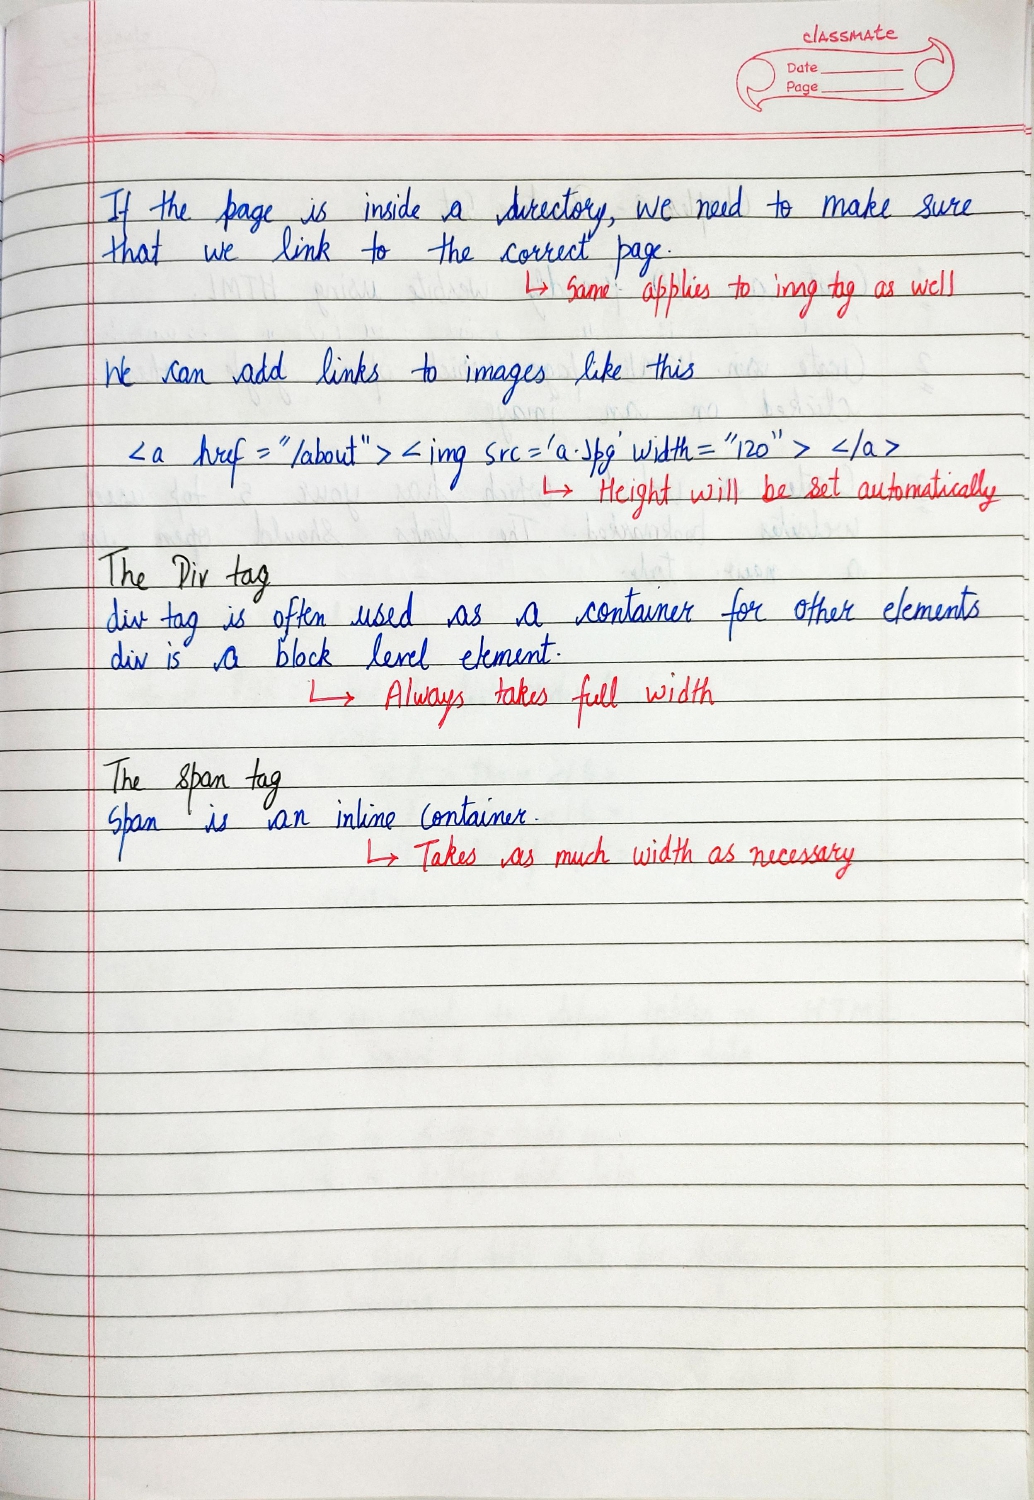 classmate
Date
Page
If the page is inside a directory, we need to make sure
that we link to the correct page.
↳ Same applies to img tag as well
We can add links to images like this
<a href = "/about"> <img src = 'a.jpg' width = "120" > </a>
↳ Height will be set automatically
The Div tag
div tag is often used as a container for other elements
div is a block level element.
↳ Always takes full width
The span tag
Span is an inline container.
↳ Takes as much width as necessary